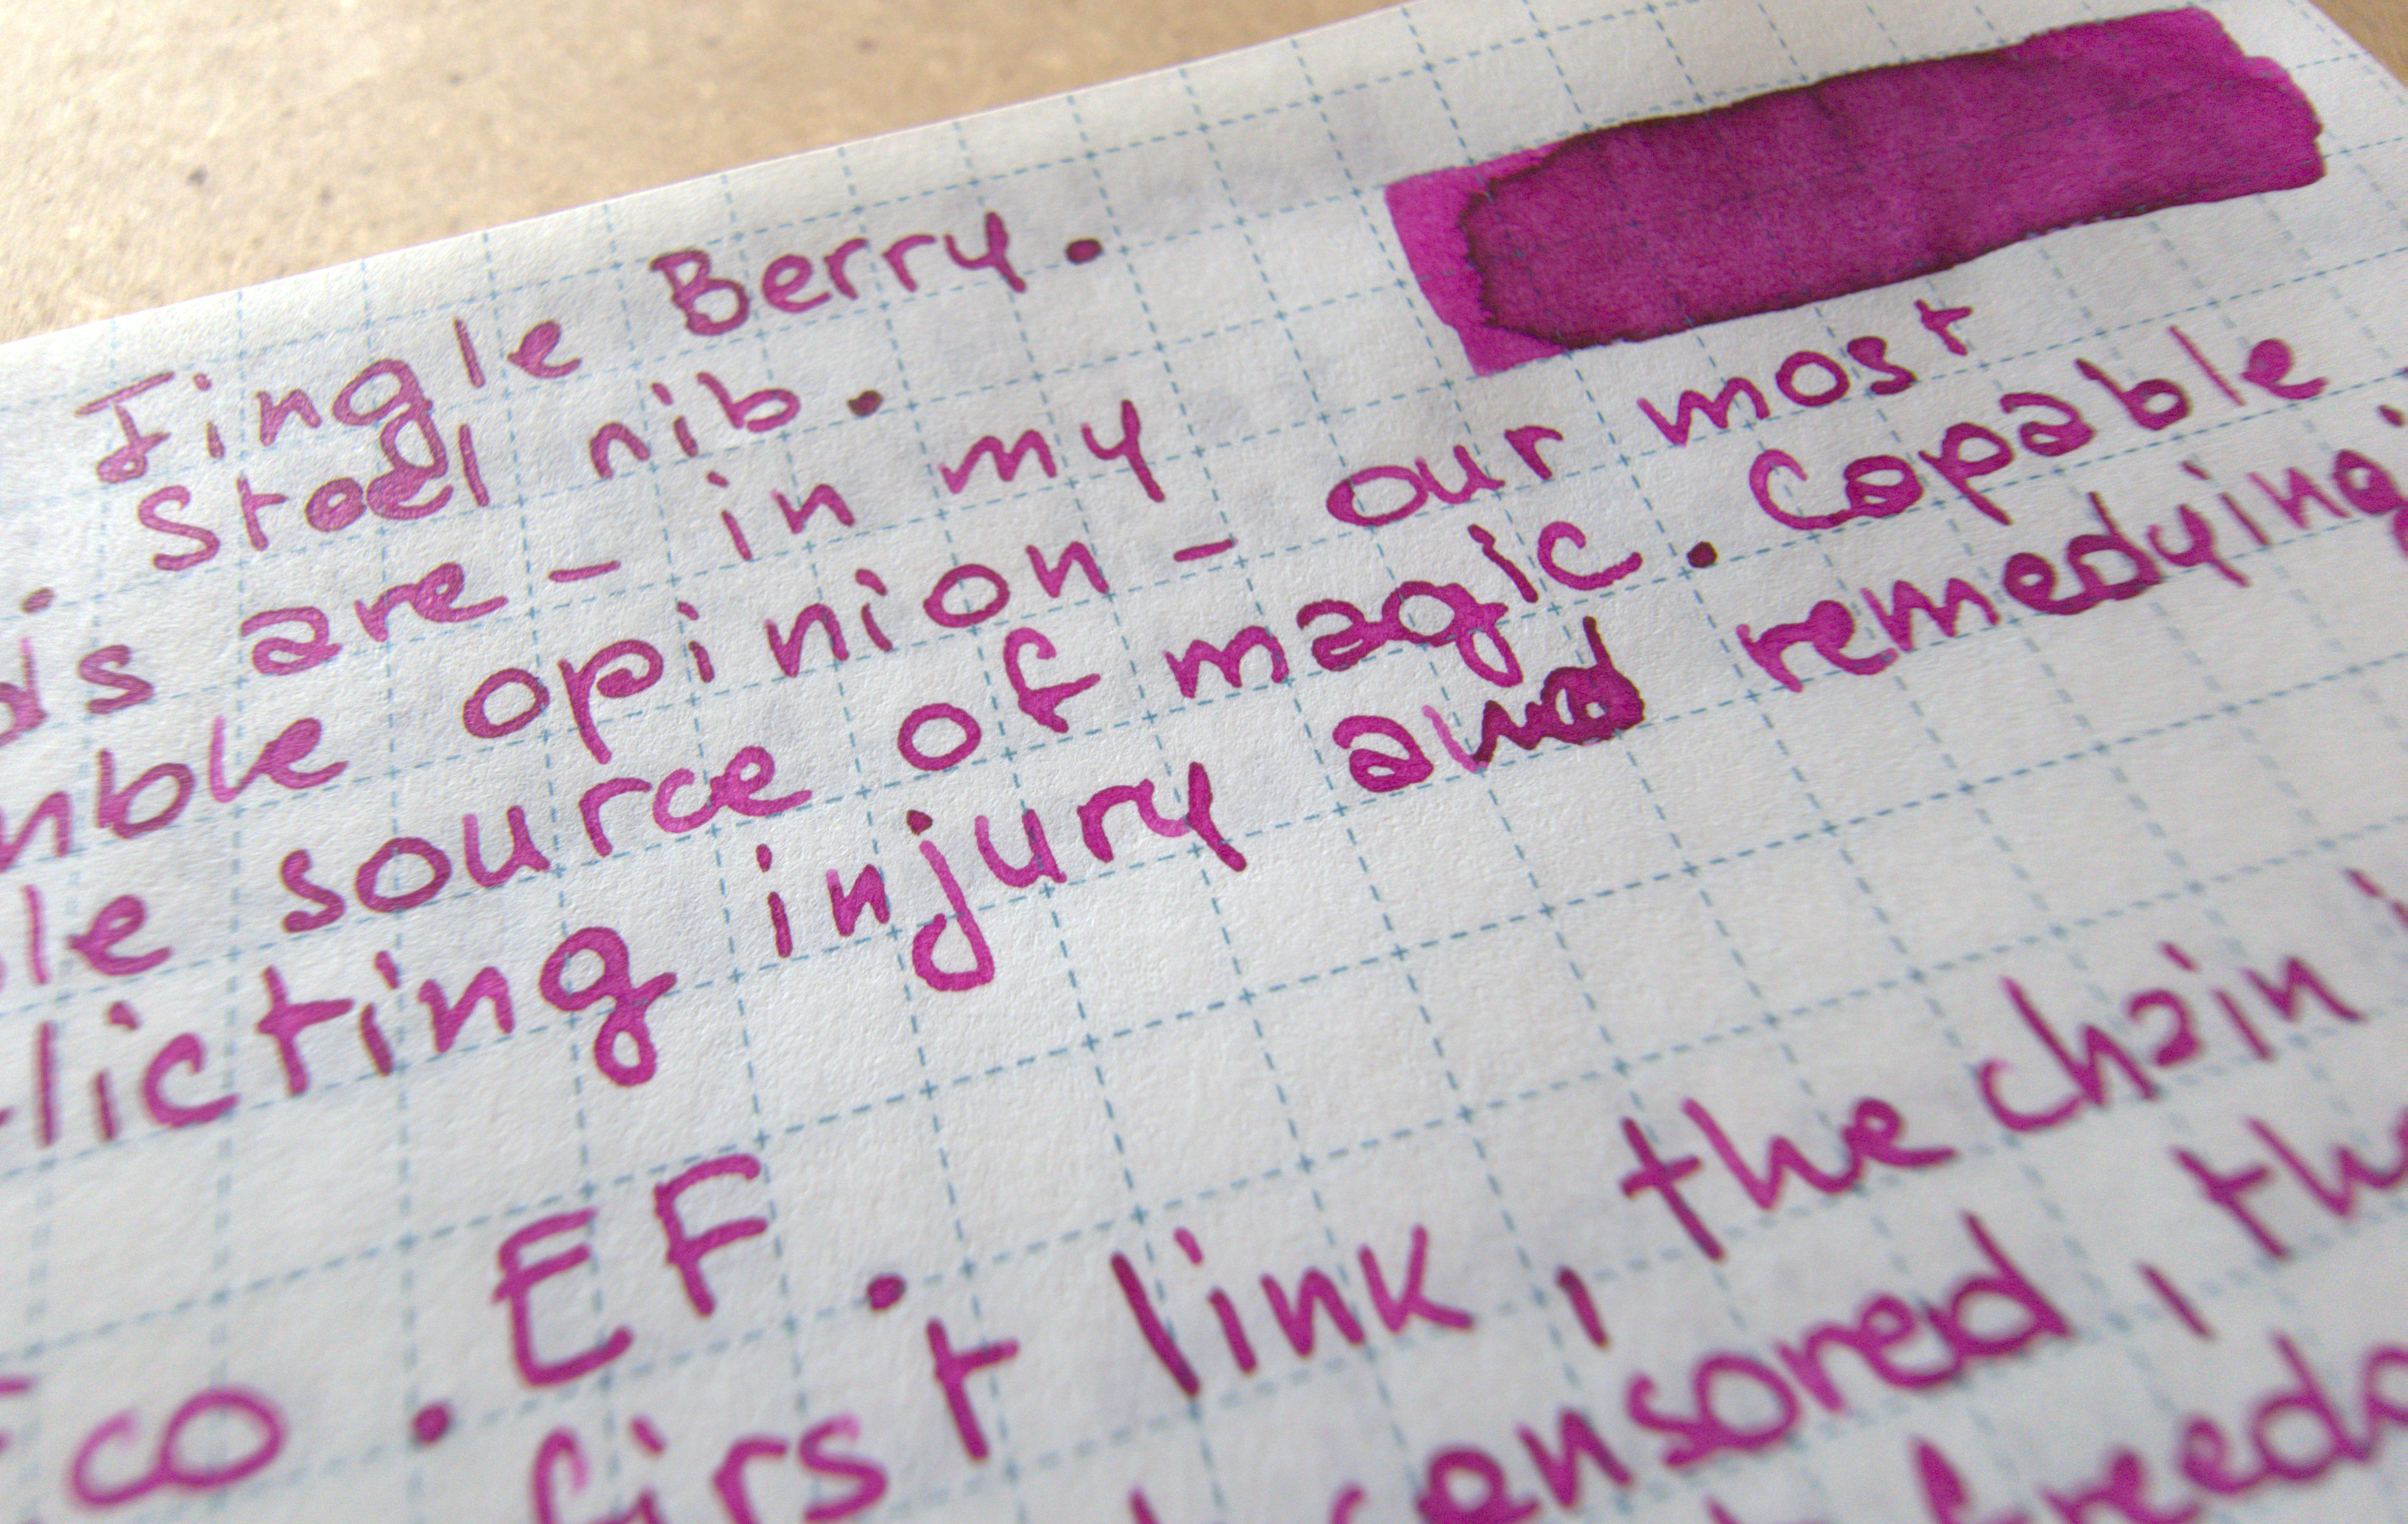 Jingle Berry.
. Steel nib.
ds are - in my
mble opinion - our most
le source of magic. Capable
licting injury and remedying
co. EF.
first link, the chain
censored, the
freedo